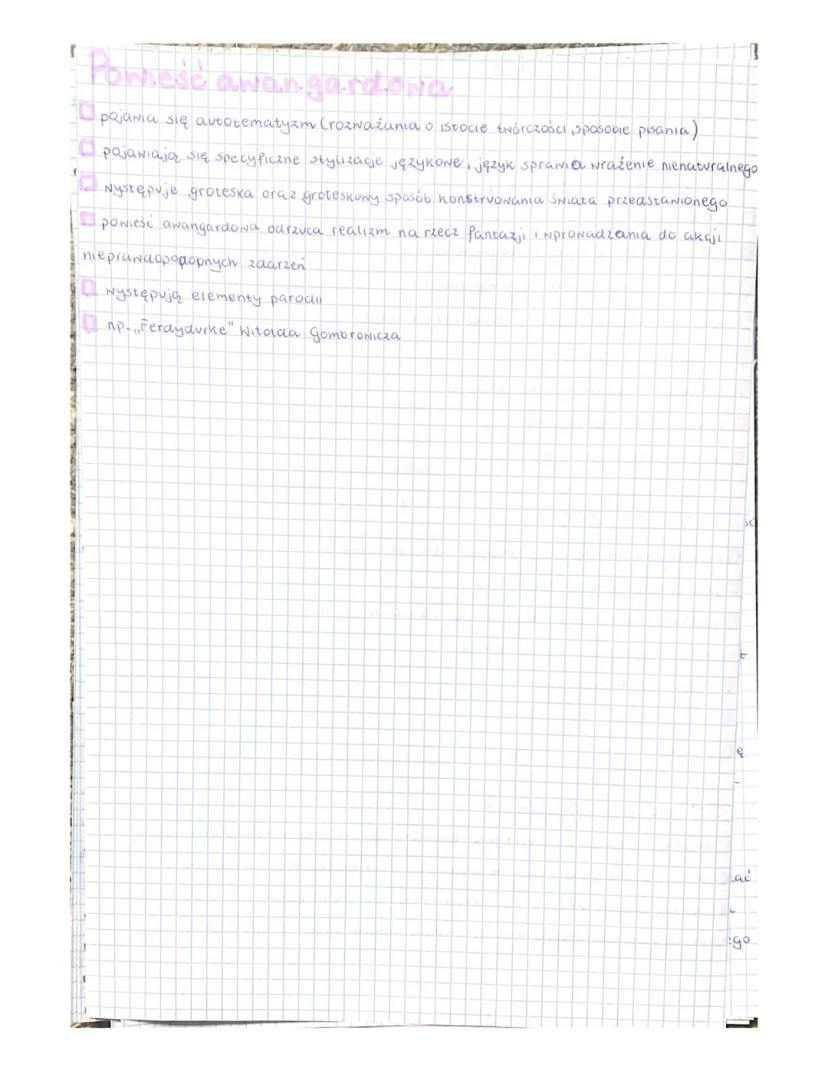 Powieść awangardowa
pojawia się autotematyzm (rozważania o istocie twórczości, sposobie pisania)
pojawiają się specyficzne stylizacje językowe, język sprawia wrażenie nienaturalnego
występuje groteska oraz groteskowy sposób konstruowania świata przedstawionego
powieść awangardowa odrzuca realizm na rzecz fantazji i wprowadzania do akcji
nieprawdopodobnych zdarzeń
występują elementy parodii
np. „Ferdydurke" Witolda Gombrowicza
ść
t
ę
-
ać
ego